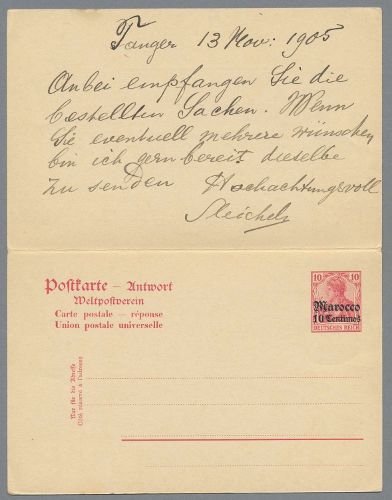 Tanger 13 Nov: 1905
Anbei empfangen Sie die
bestellten Sachen. Wenn
Sie eventuell mehrere wünschen
bin ich gern bereit dieselbe
zu senden Hochachtungsvoll
Postkarte – Antwort
Weltpostverein
Carte postale – réponse
Union postale universelle
10 10
Marocco
10 Centimos
DEUTSCHES REICH
Nur für die Adresse
Côté réservé à l'adresse